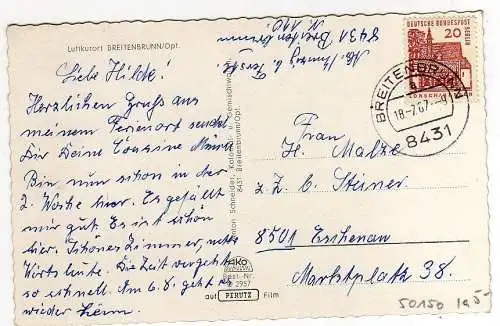 Luftkurort BREITENBRUNN/Opf.
Liebe Hilde!
Herzlichen Gruss aus
meinem Ferienort sendet
Dir Deine Cousine
Bin nun schon in der
2. Woche hier. Es gefällt
mir gut. Es ist schön
hier. Schönes Zimmer, nette
Wirtsleute. Die Zeit vergeht
so schnell. Am 6.8. geht es
wieder heim.
Anton Schneider, u. Gemischtwaren
8431 Breitenbrunn/Opf.
AKO
Best.-Nr.
2957
auf PERUTZ Film
Abs.
8431 Breitenbrunn
DEUTSCHE BUNDESPOST
BERLIN
20
BREITENBRUNN
a
18-7.67
8431
Frau
H. Malze
z. Z. b. Steiner
8501 Eschenau
Marktplatz 38.
50150